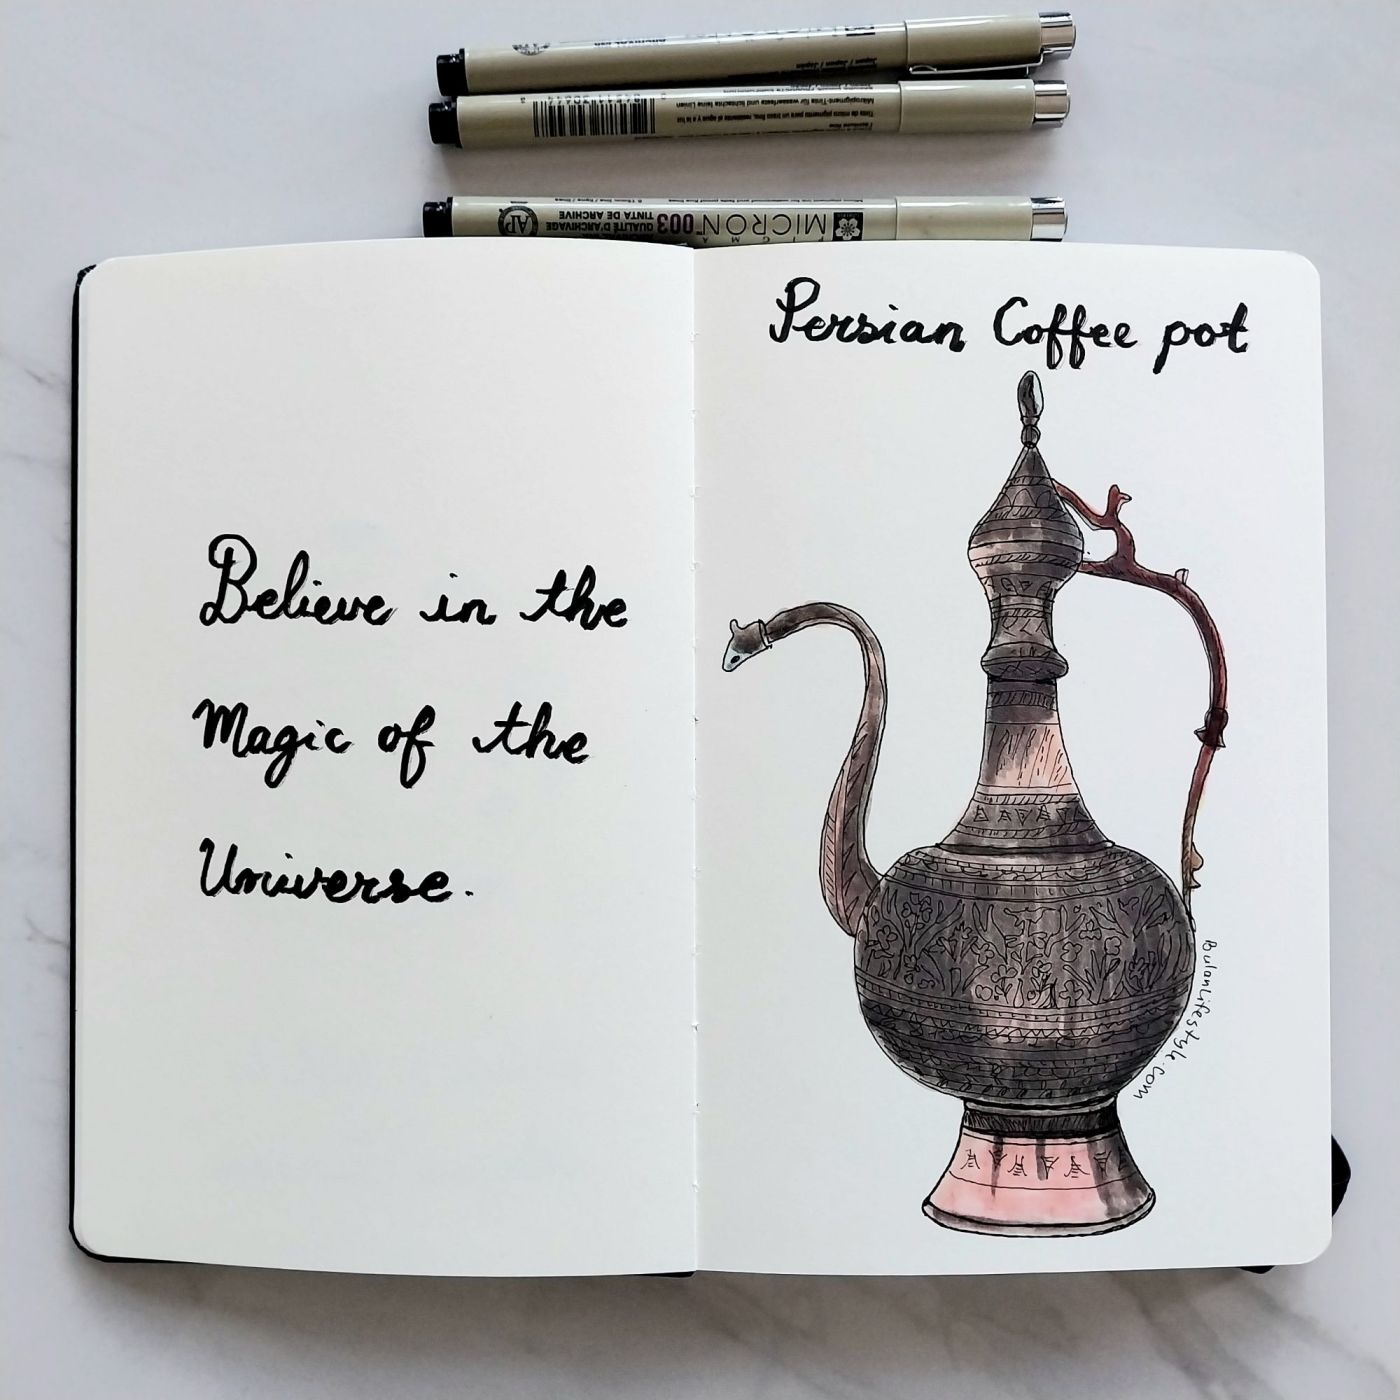 MICRON 003
QUALITÉ D'ARCHIVAGE
TINTA DE ARCHIVE
AP
Believe in the
Magic of the
Universe.
Persian Coffee pot
Bulanlifestyle.com